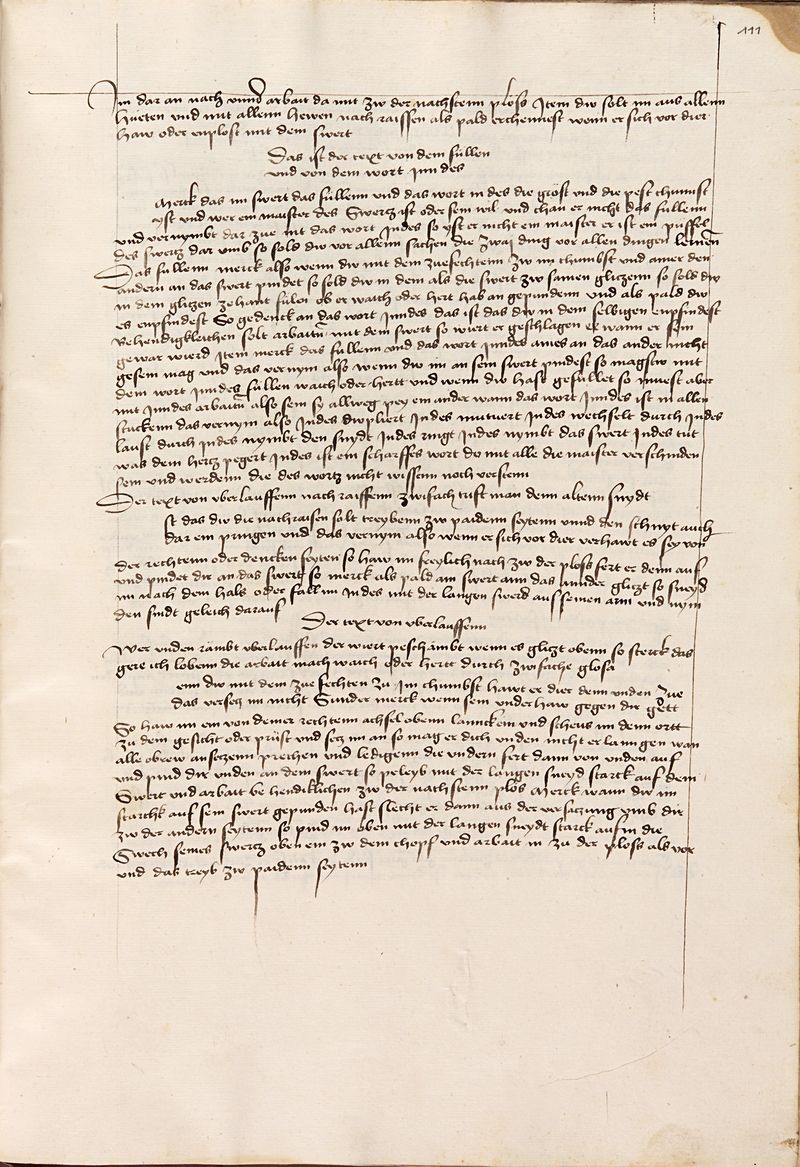 111
Im dar an nach vnnd arbait da mit zw der nachstenn plöss Item dw solt im aus allenn
hueten vnd mit allenn hewen nach raissen als pald erchennest wenn er sich vor dier
haw oder enplost mit dem swert
Das ist der text von dem füllen
vnd von dem wort Inn des
Merck das im swert das füllenn vnd das wort in des die gröst vnd die pest chunnst
yst vnd wer ein maister des Swertz ist oder sein wil vnd chan er nicht das füllenn
vnd vernymbt dar zue nit das wort Indes so yst er nicht ein maister er ist ein püffel
des swertz dar vmb so sold dw vor allenn sachen die zwai ding vor allen dingen lernen
Das füllenn merck also wenn dw mit dem zuefechtenn zw im chumbst vnd ainer den
andern an das swert pindet so sold dw in dem als die swert zw samen glitzenn so sold dw
in dem glitzen zehant fülen ob er waich oder hert hab an gepunden vnd als pald dw
es enpfindest So gedenck an das wort Inndes das ist das dw in dem selbigen enpfindest
Behendigkleichen solt arbaittn mit dem swert so wiert er geschlagen ee wann er sein
gewar wierd Item merck das füllenn vnd das wort Inndes aines an das ander nicht
gesein mag vnd das vernym also wenn dw im an sein swert pindest so magstw mit
dem wort Inndes füllen waich oder hertt vnd wenn dw hast gefüllet so muest aber
mit Inndes arbaittn also sein sy allweg pey ein ander wann das wort Inndes ist in allen
stuckenn das vernym also Indes dupliert Indes mutiert Indes wechselt durch Indes
laust durch Indes nymbt den snydt Indes ringt Indes nymbt das swert Indes tut
was dem hertz pegert Indes ist ein scharffes wort do mit alle die maister verschniden
sein vnd werdenn die des wortz nicht wissenn noch versteenn
Der text von vberlauffenn nach raissenn zwifach trift man denn altenn snydt
st das dw die nachraisen solt treybenn zw paidenn seytenn vnnd den schnyt auch
dar ein pringen vnd das vernym also wenn er sich vor dier verhawt es sey von
der rechtenn oder dencken seyten so haw im freylich nach zw der ploss fert er denn auf
vnd pindet dir an das swert so merck als pald ain swert ann das annder glitzt so sneyd
im nach dem hals oder fall im Indes mit der langen sneid auf seinen arm vnd nym
den snidt geleich darauf
Der text von vberlauffenn
Wer vnden rämbt vberlauffen der wiert peschämbt wenn es glitzt obenn so sterck das
gere ich lobenn die arbait mach waich oder hertt durch zwifache glosa
enn dw mit dem zue fechten zu Im chumbst hawt er dier denn vnden zue
das versetz im nicht Sunder merck wenn sein vnderhaw gegen dir gett
So haw im ein von deiner rechtenn achsel obenn lannck ein vnd scheus im denn ortt
zu dem gesicht oder prüst vnd setz im an so mag er dich vnden nicht er lanngen wan
alle obrew ansetzenn prechen vnd ledigenn die vndern fert dann von vnden auf
vnd pind dir vnden an dem swert so peleyb mit der langen sneyd starck auf dem
Swert vnd arbait be hendiklichen zw der nachstenn plös Merck wann dw im
starchk auf sein swert gepunden hast slecht er dann aus der versatzung vmb dir
zw der andern seytenn so pind im oben mit der langen sneydt starck auf in die
Swech seines swertz oben ein zw dem chopf vnd arbait in zu der ploss als vor
vnd das treyb zw paidenn seytenn